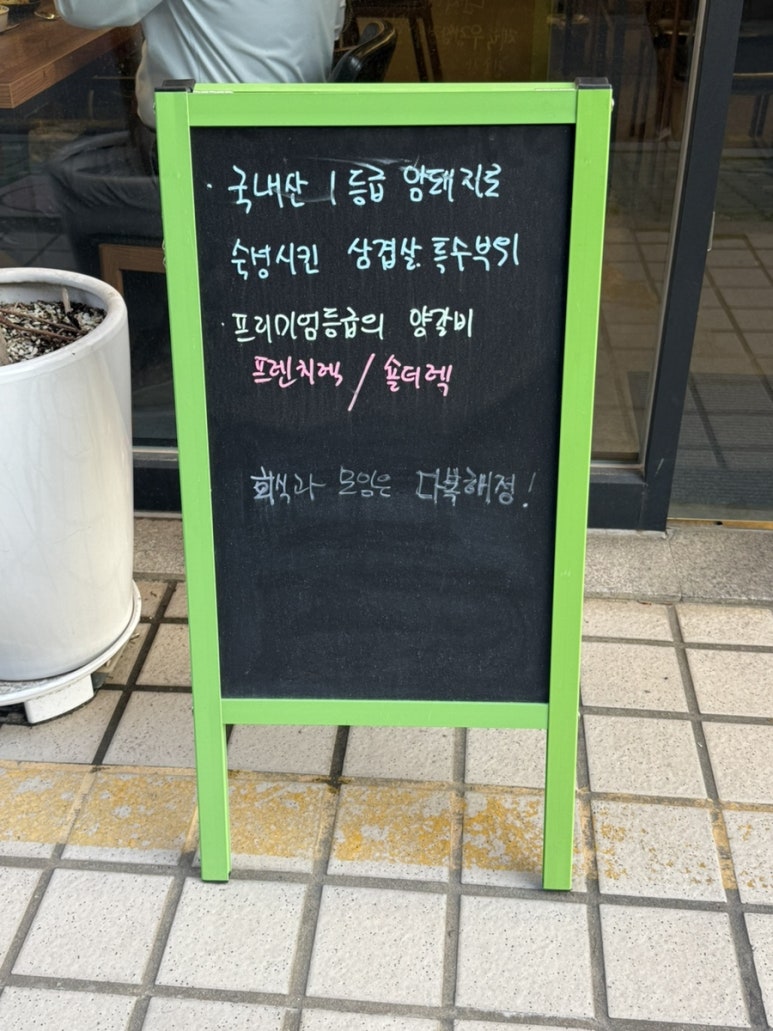 · 국내산 1등급 암돼지로
숙성시킨 삼겹살. 특수부위
· 프리미엄등급의 양갈비
프렌치렉 / 숄더렉
회식과 모임은 다복해정!